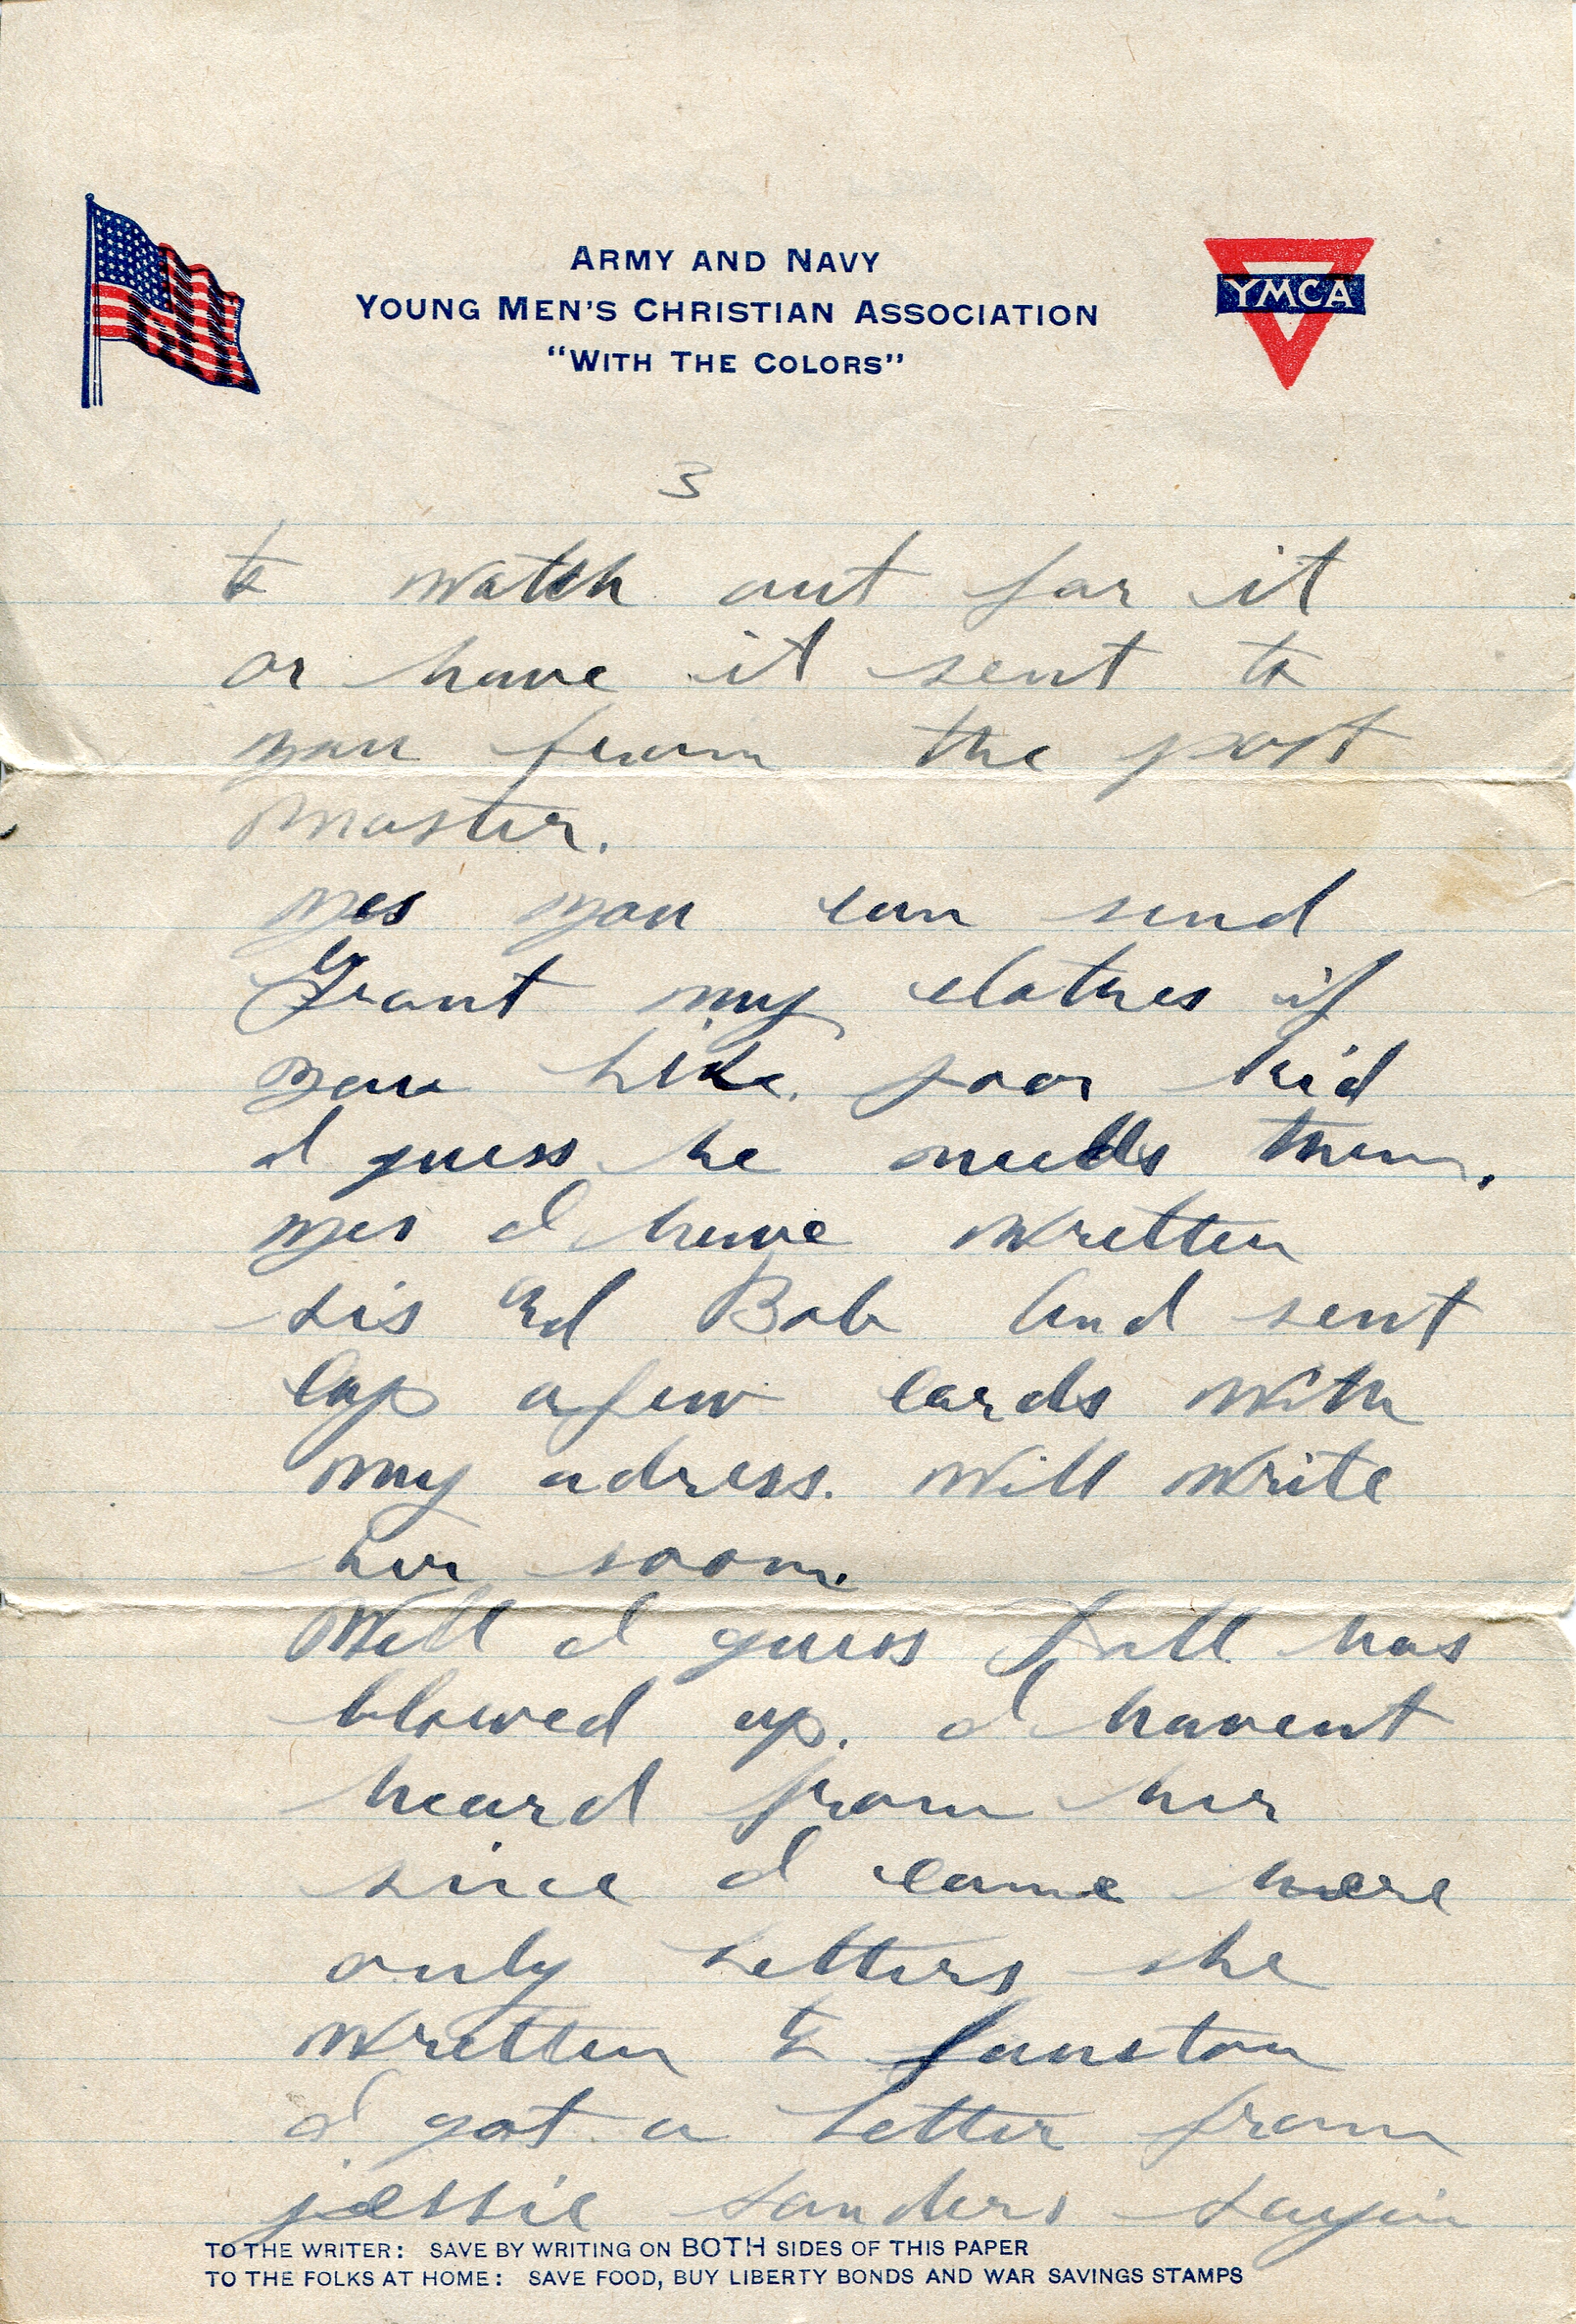 ARMY AND NAVY
YOUNG MEN'S CHRISTIAN ASSOCIATION
"WITH THE COLORS"
YMCA
3
to watch out for it
or have it sent to
you from the post
master.
yes you can send
Grant my clothes if
you like. poor kid
I guess he needs them.
yes I have written
sis Ed Bob and sent
a few cards with
my adress. Will write
her soon.
Well I guess has
blowed up. I havent
heard from her
since I came here
only letters she
written to funston
I got a letter from
jessie sanders sayin
TO THE WRITER: SAVE BY WRITING ON BOTH SIDES OF THIS PAPER
TO THE FOLKS AT HOME: SAVE FOOD, BUY LIBERTY BONDS AND WAR SAVINGS STAMPS